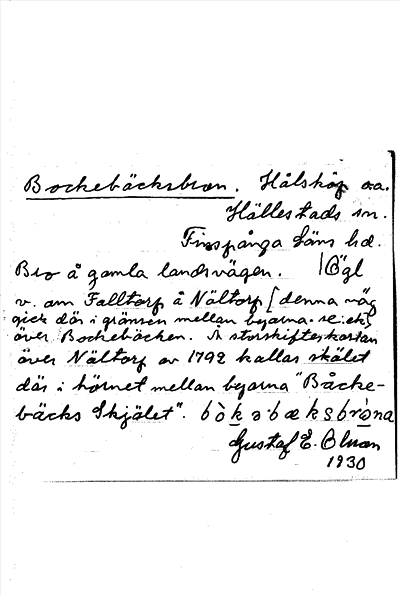 Bockebäcksbron. Hålsköp o.a.
Hällestads sn.
Finspånga läns hd.
Bro å gamla landsvägen. Ögl
v. om Falltorp å Nältorp [denna väg
gick där i gränsen mellan byarna. se ek.]
över Bockebäcken. Å storskifteskartan
över Nältorp av 1792 kallas skälet
där i hörnet mellan byarna "Båcke-
bäcks Skjälet". bòkəbæksbròna
Gustaf E. Olman
1930